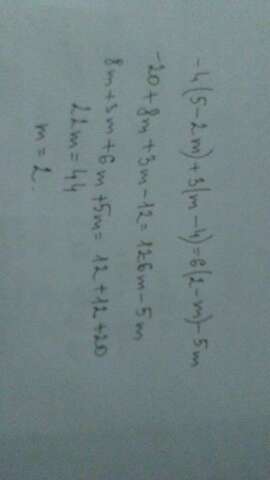 -4(5-2m)+3(m-4)=6(2-m)-5m
-20+8m+3m-12=126m-5m
8m+3m+6m+5m=12+12+20
22m=44
m=2.